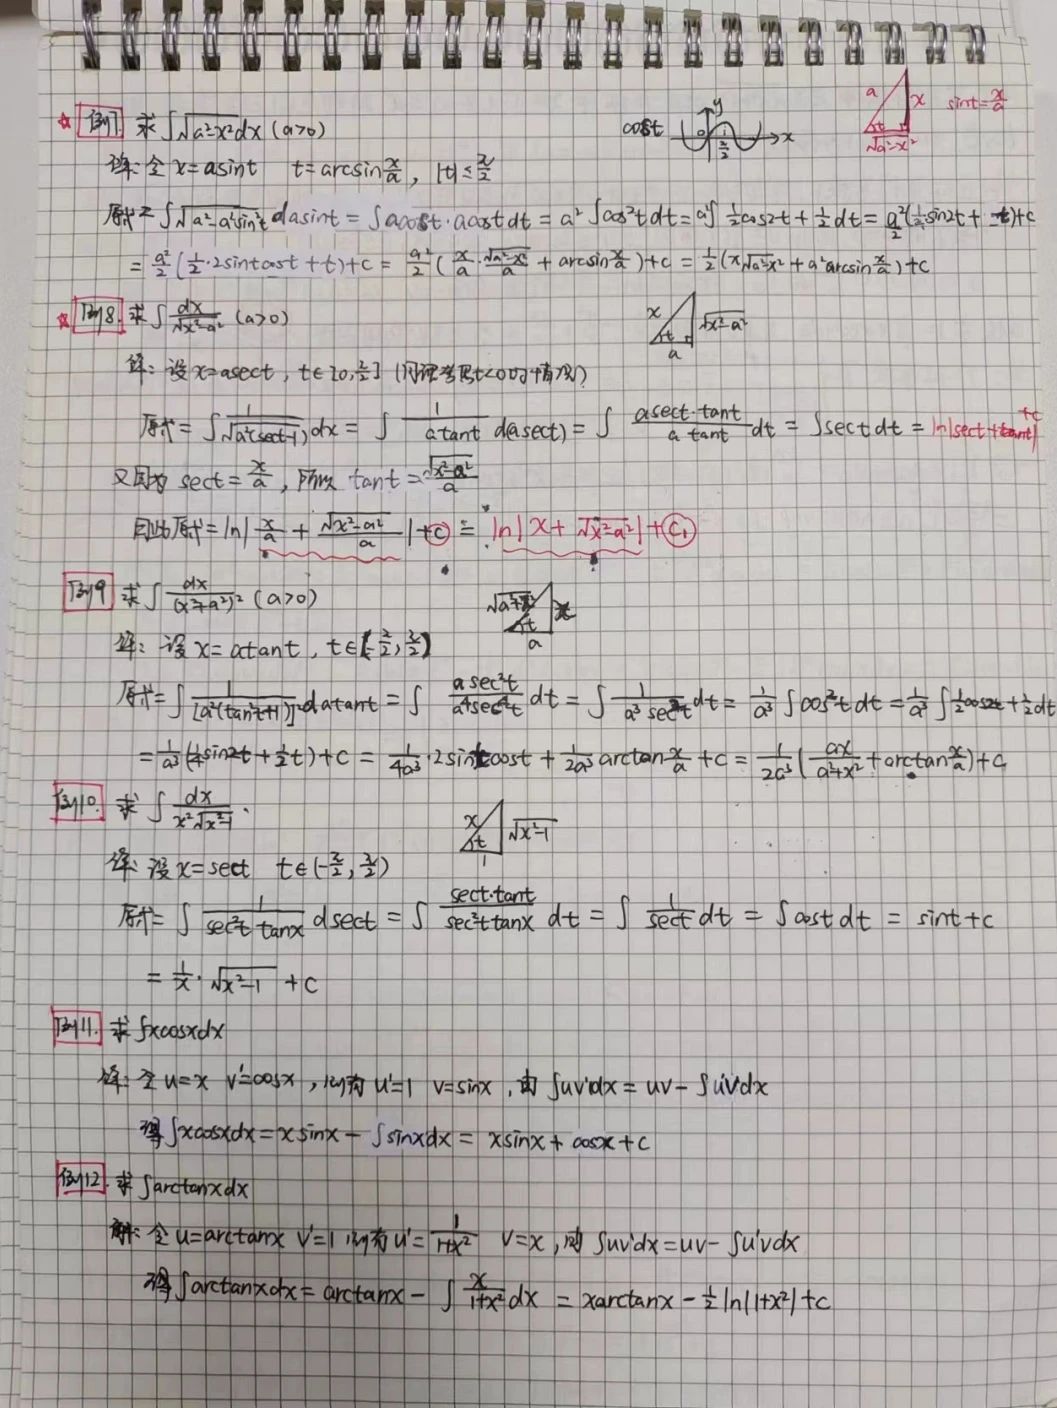 例7. 求∫√(a²-x²)dx (a>0)
cost y x π/2
a x t √(a²-x²) sint=x/a
解: 令x=asint t=arcsin x/a, |t|≤π/2
原式=∫√(a²-a²sin²t) dasint = ∫acost·acostdt = a²∫cos²tdt = a²∫ 1/2cos2t+1/2 dt = a²/2(1/2sin2t+t)+c
= a²/2(1/2·2sintcost+t)+c = a²/2(x/a·√(a²-x²)/a + arcsin x/a)+c = 1/2(x√(a²-x²)+a²arcsin x/a)+c
例8. 求∫dx/√(x²-a²) (a>0)
x t a √(x²-a²)
解: 设x=asect, t∈[0,π/2] (同理考虑t<0时情况)
原式=∫1/√(a²(sect-1))dx = ∫1/(atant) d(asect) = ∫(asect·tant)/(a tant)dt = ∫sectdt = ln|sect+tant|+c
又因为sect=x/a, 所以tant=√(x²-a²)/a
因此原式=ln|x/a+√(x²-a²)/a|+c = ln|x+√(x²-a²)|+c₁
例9 求∫dx/(x²+a²)² (a>0)
√(a²+x²) x t a
解: 设x=atant, t∈(-π/2,π/2)
原式=∫1/[a²(tan²t+1)]²datant = ∫asec²t/(a⁴sec⁴t)dt = ∫1/(a³sec²t)dt = 1/a³∫cos²tdt = 1/a³∫1/2cos2t+1/2dt
= 1/a³(1/4sin2t+1/2t)+c = 1/(4a³)·2sintcost+1/(2a³)arctan x/a+c = 1/(2a³)(ax/(a²+x²)+arctan x/a)+c
例10. 求∫dx/(x²√(x²-1)).
x t 1 √(x²-1)
解: 设x=sect t∈(-π/2,π/2)
原式=∫1/(sec²t tanx)dsect = ∫(sect·tant)/(sec²t tanx)dt = ∫1/sect dt = ∫costdt = sint+c
= 1/x·√(x²-1)+c
例11. 求∫xcosxdx
解: 令u=x v'=cosx, 则有u'=1 v=sinx, 由∫uv'dx=uv-∫u'vdx
得∫xcosxdx=xsinx-∫sinxdx=xsinx+cosx+c
例12. 求∫arctanxdx
解: 令u=arctanx v'=1 则有u'=1/(1+x²) v=x, 由∫uv'dx=uv-∫u'vdx
得∫arctanxdx=arctanx-∫x/(1+x²)dx = xarctanx-1/2ln|1+x²|+c